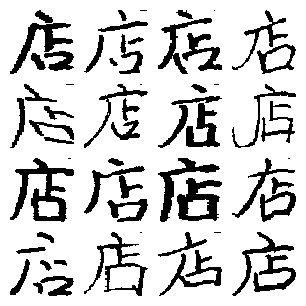 店店店店
店店店店
店店店店
店店店店